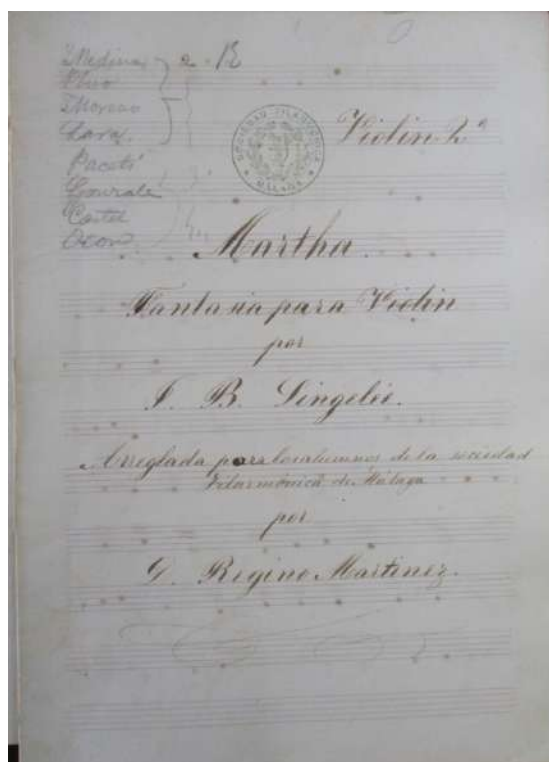 Medina
Moreno
Lara
Pacetti
Castel
Ocon
a - 12
SOCIEDAD FILARMONICA
MALAGA
Violin 2º
Martha.
Fantasia para Violin
por
J. B. Singelée.
Arreglada para los alumnos de la sociedad
Filarmónica de Málaga
por
D. Regino Martinez.